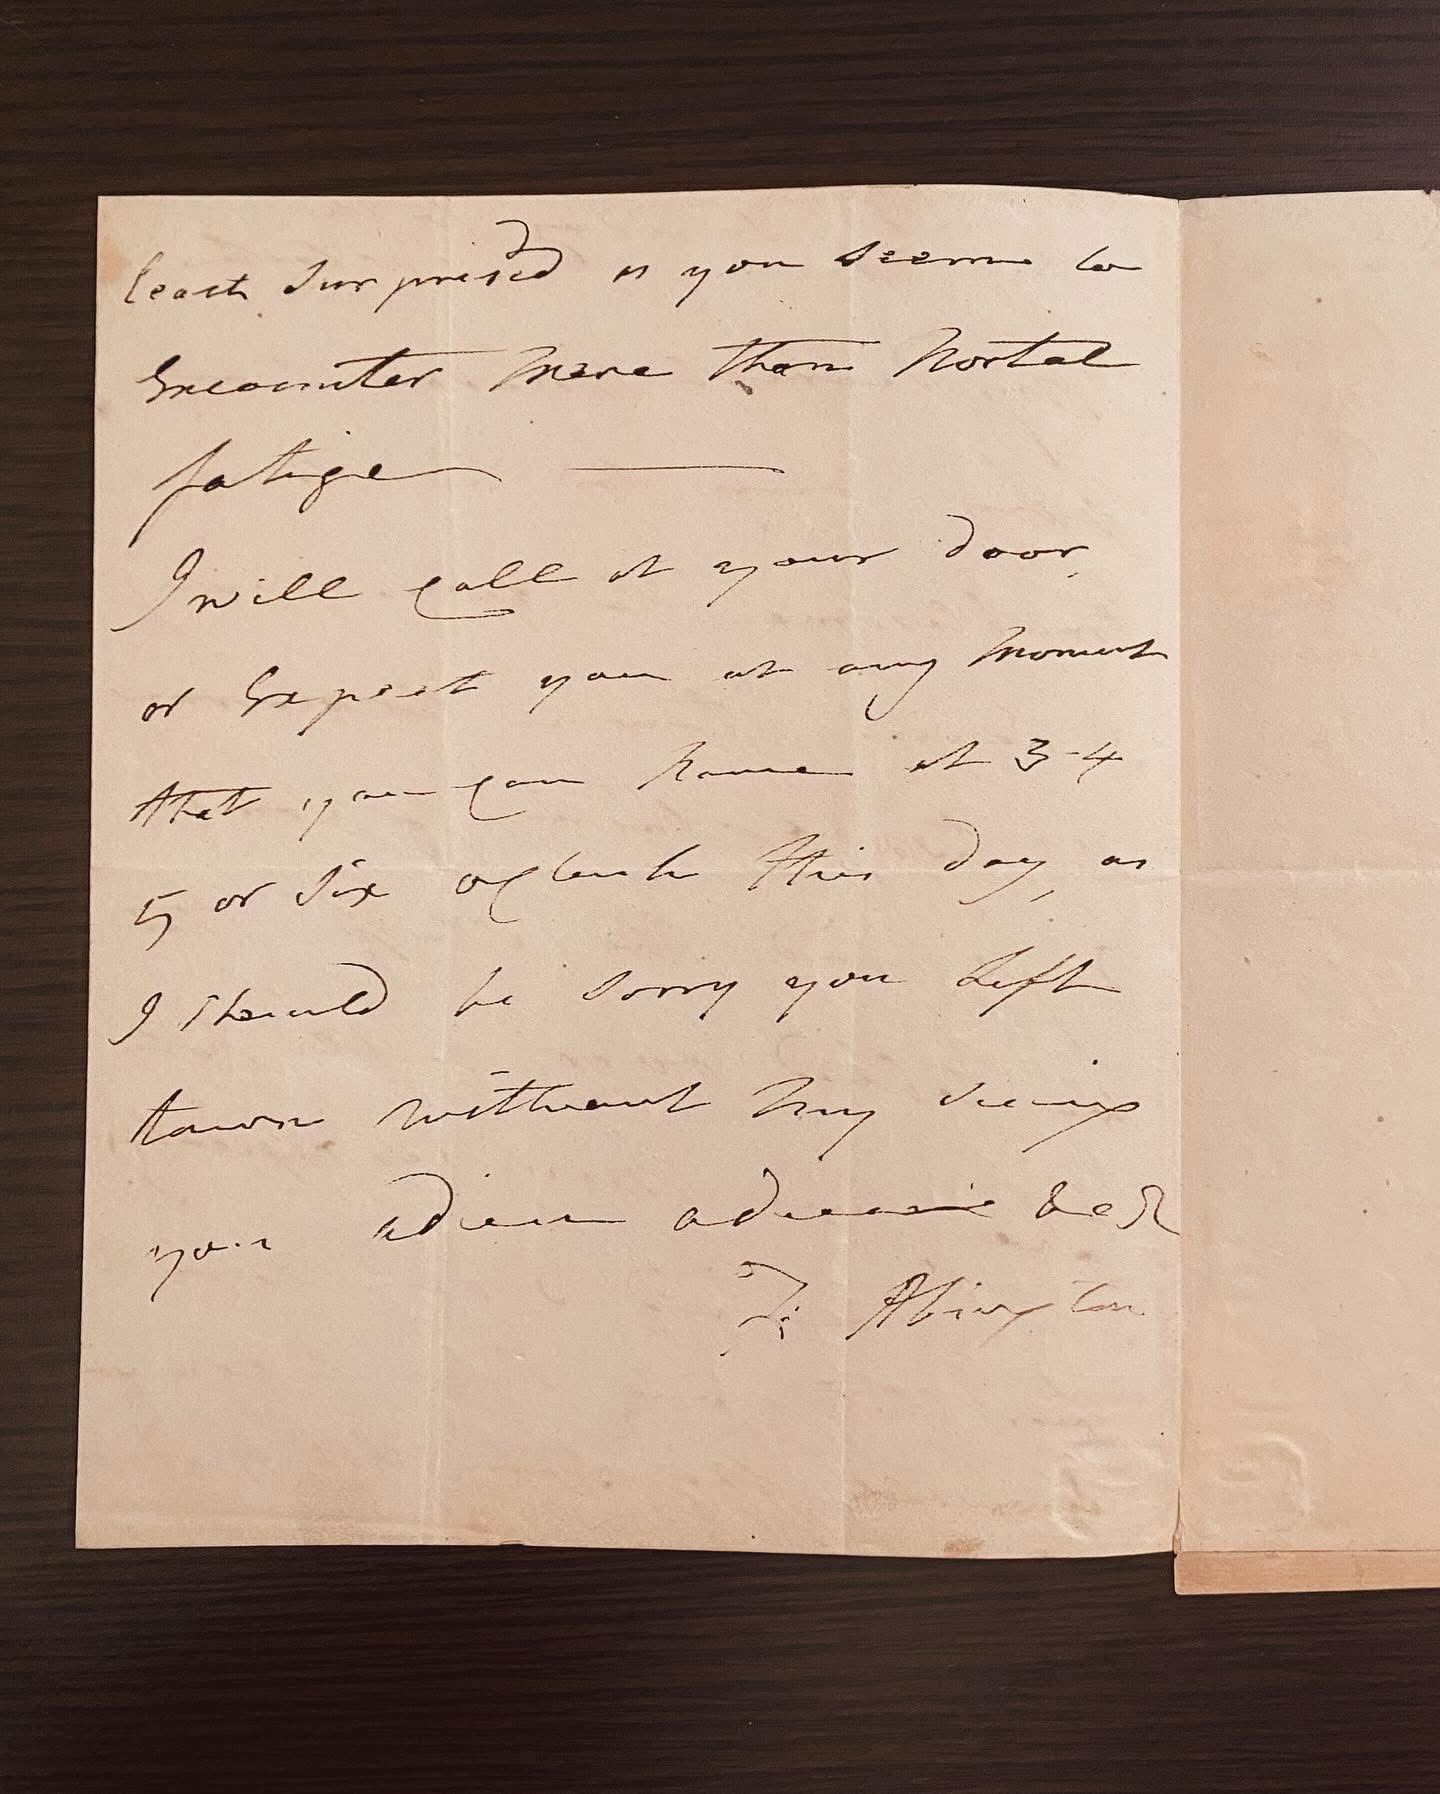 least surprised as you seem to
Encounter More than Mortal
fatige —
I will call at your door,
or Expect you at any Moment
that you can Name at 3-4
5 or Six oClock this day, as
I Should be sorry you left
town without my seeing
you adieu adieu
F: Abington